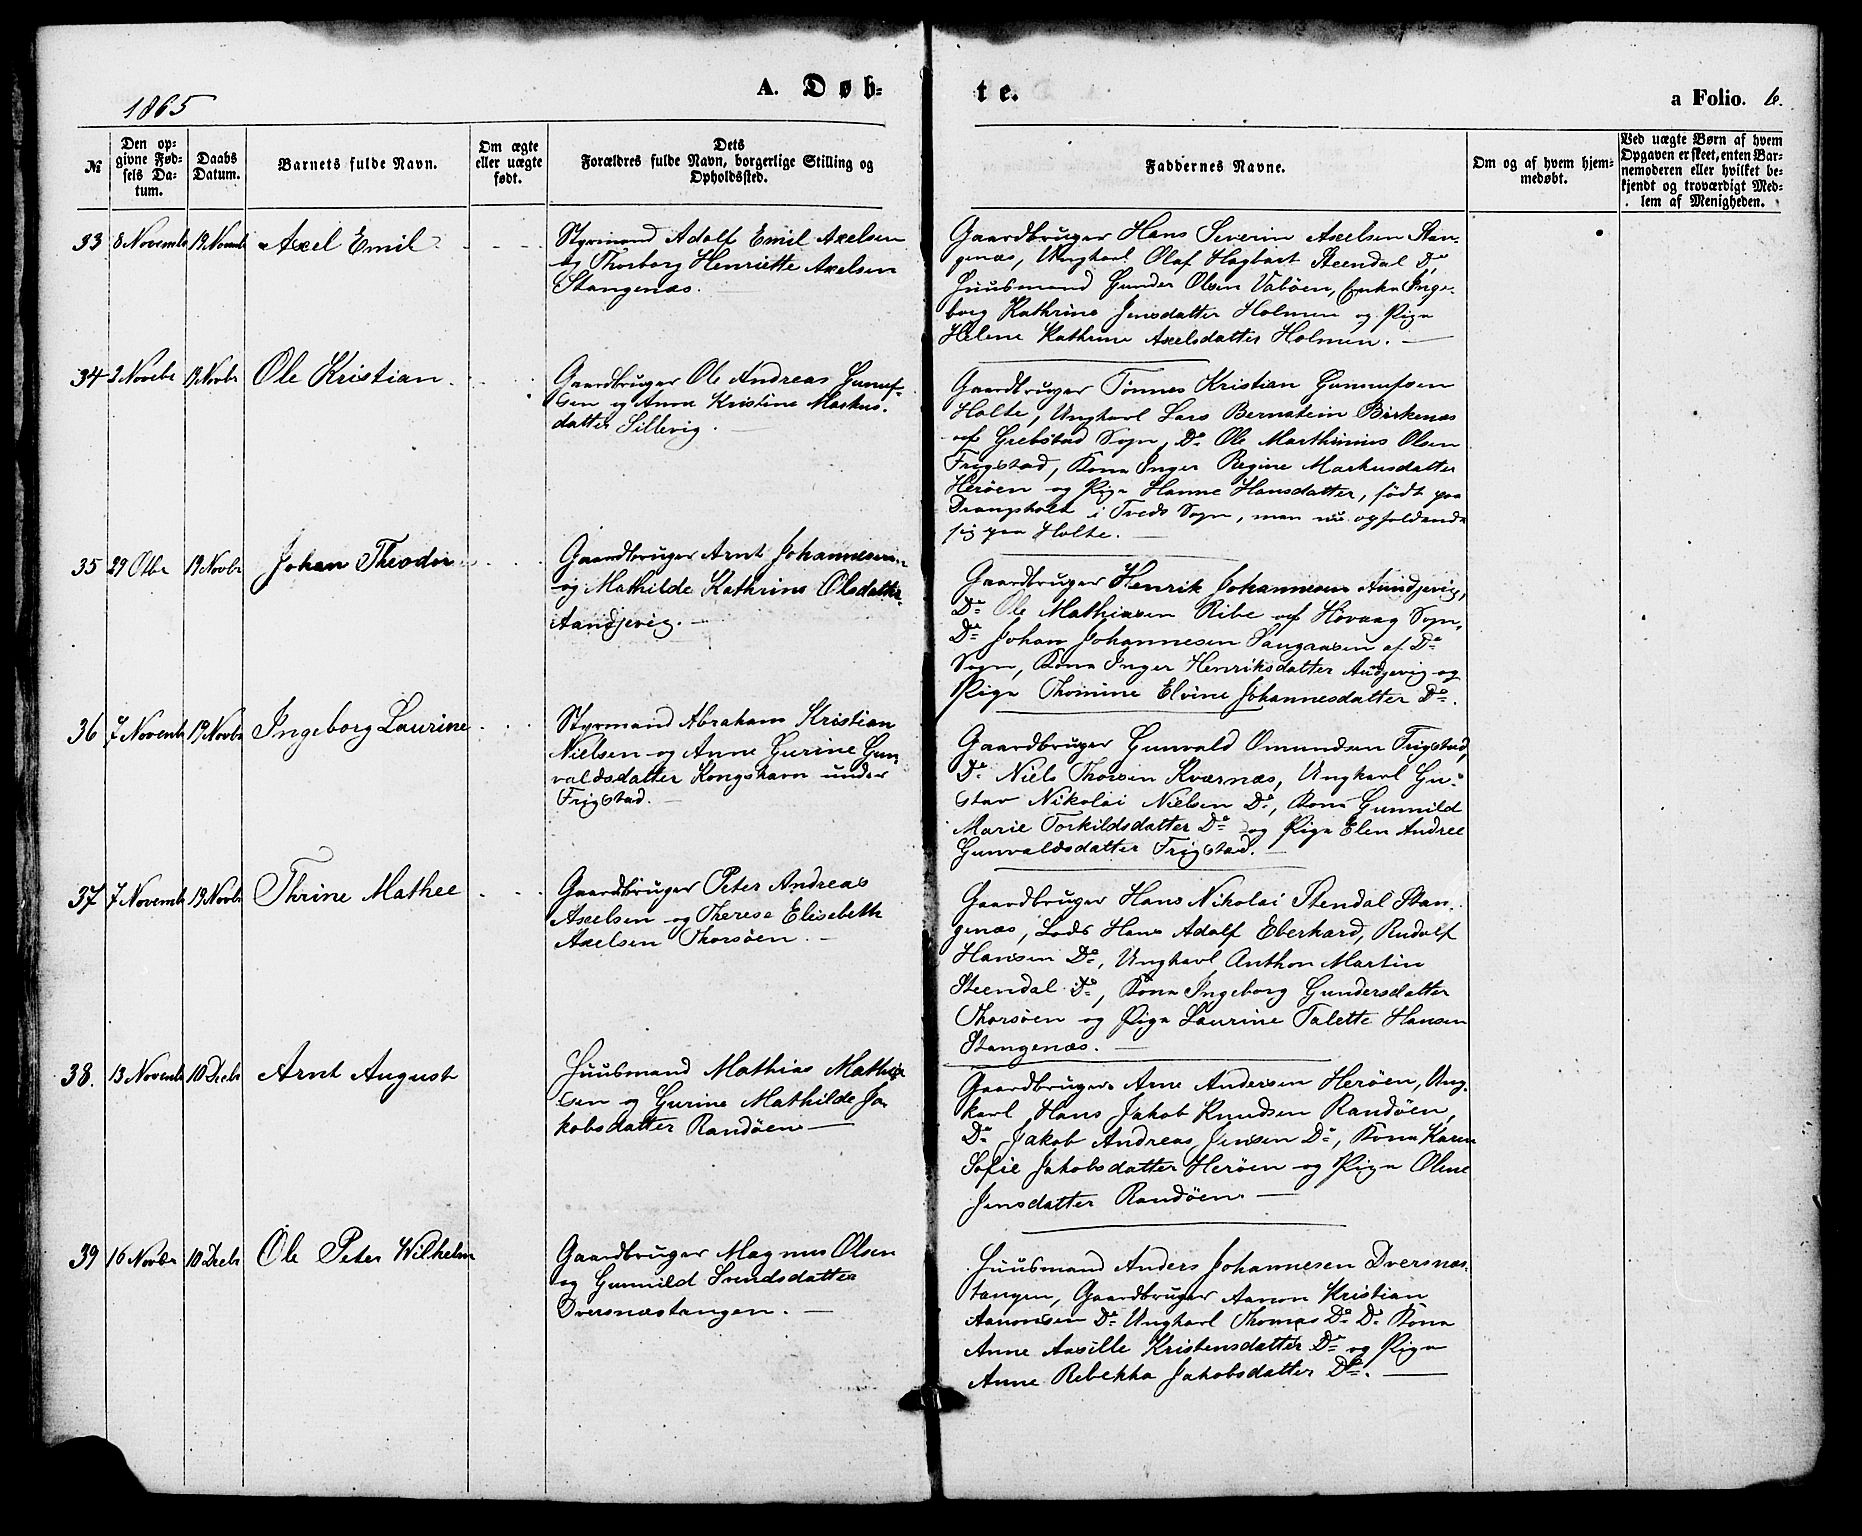 1865
A. Døb-
te.
a Folio. 6.
№
Den op-
givne Fød-
sels Da-
tum.
Daabs
Datum.
Barnets fulde Navn.
Om ægte
eller uægte
født.
Dets
Forældres fulde Navn, borgerlige Stilling og
Opholdssted.
Faddernes Navne.
Om og af hvem hjem-
medøbt.
Ved uægte Børn af hvem
Opgaven er skeet, enten Bar-
nemoderen eller hvilket be-
kjendt og troværdigt Med-
lem af Menigheden.
33 8 Novemb 19 Novemb Axel Emil
Styrmand Adolf Emil Axelsen
og Thorborg Henriette Axelsen
Stangenæs.
Gaardbruger Hans Severin Axelsen Stan-
genæs, Ungkarl Olaf Hagbart Steendal Do,
Huusmand Gunder Olsen Vaböen, Enke Inge-
borg Kathrine Jensdatter Holmen og Pige
Helene Kathrine Axelsdatter Holmen.
34 2 Novbr 19 Novbr Ole Kristian.
Gaardbruger Ole Andreas Gunuf-
sen og Anna Kristine Markus-
datter Sillevig.
Gaardbruger Tönnes Kristian Gunnufsen
Holte, Ungkarl Lars Bernstein Birkenæs
af Grebstad Sogn, Do Ole Marthinius Olsen
Frigstad, Kona Inger Regine Markusdatter
Heröen og Pige Hanne Hansdatter, födt paa
Drangsholt i Tveds Sogn, men nu opholdende
sig paa Holte.
35 29 Otbr 19 Novbr Johan Theodor
Gaardbruger Arnt Johannesen
og Mathilde Kathrine Olsdatter
Aandjevig.
Gaardbruger Henrik Johannesen Aandjevig,
Do Ole Mathiasen Ribe af Hövaag Sogn,
Do Johan Johannesen Sangaasen af Do
Sogn, Kona Inger Henriksdatter Aandjevig og
Pige Thomine Elvine Johannesdatter Do.
36 7 Novemb 19 Novbr Ingeborg Laurine
Styrmand Abraham Kristian
Nielsen og Anne Gurine Gun-
valdsdatter Kongshavn under
Frigstad.
Gaardbruger Gunvald Omundsen Frigstad,
Do Niels Thorsen Kværnæs, Ungkarl Gu-
stav Nikolai Nielsen Do, Kona Gunnild
Marie Torkildsdatter Do og Pige Elen Andree
Gunvaldsdatter Frigstad.
37 7 Novemb 19 Novbr Thrine Mathee
Gaardbruger Peter Andreas
Axelsen og Therese Elisebeth
Axelsen Thorsöen.
Gaardbruger Hans Nikolai Stendal Stan-
genæs, Lods Hans Adolf Eberhard, Rudolf
Hansen Do, Ungkarl Anthon Martin
Steendal Do, Kona Ingeborg Gundersdatter
Thorsöen og Pige Laurine Talette Hansen
Stangenæs.
38. 13 Novemb 10 Decbr Arnt August
Huusmand Mathias Mathia-
sen og Gurine Mathilde Ja-
kobsdatter Randöen
Gaardbruger Arne Andersen Heröen, Ung-
karl Hans Jakob Knudsen Randöen,
Do Jakob Andreas Jensen Do, Kona Karen
Sofie Jakobsdatter Heröen og Pige Oline
Jensdatter Randöen
39 16 Novbr 10 Decbr Ole Peter Wilhelm
Gaardbruger Magnus Olsen
og Gunnild Svendsdatter
Dversnæstangen.
Huusmand Anders Johannesen Dversnæs-
tangen, Gaardbruger Aanon Kristian
Aanonsen Do Ungkarl Thomas Do Do Kona
Anne Aasille Kristensdatter Do og Pige
Anne Rebekka Jakobsdatter Do.